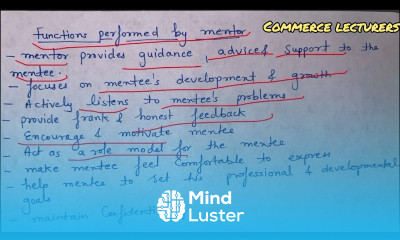 Functions performed by mentor
COMMERCE LECTURERS
- mentor provides guidance, advice & support to the
mentee.
- focuses on mentee's development & growth
- Actively listens to mentee's problems
- provide frank & honest feedback
- Encourage & motivate mentee
- Act as a role model for the mentee
- make mentee feel comfortable to express
- help mentee to set his professional & developmental
goals
- maintain
Mind
Luster